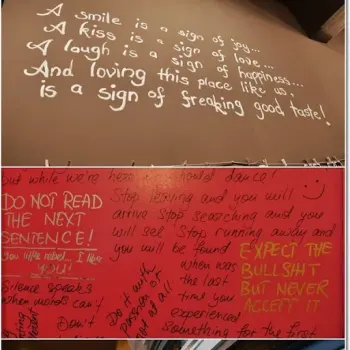 A smile is a sign of joy...
A kiss is a sign of love...
A laugh is a sign of happiness...
And loving this place like us,
is a sign of freaking good taste!
but while we're here we should dance!
DO NOT READ
THE NEXT
SENTENCE!
You little rebel.. I like
YOU!
Silence speaks
when words can't
Don't
Stop leaving and you will
arrive Stop searching and you
will see Stop running away and
you will be found
Do it with
passion or
not at all
when was
the last
time you
experienced
something for the first
EXPECT THE
BULLSHIT
BUT NEVER
ACCEPT IT